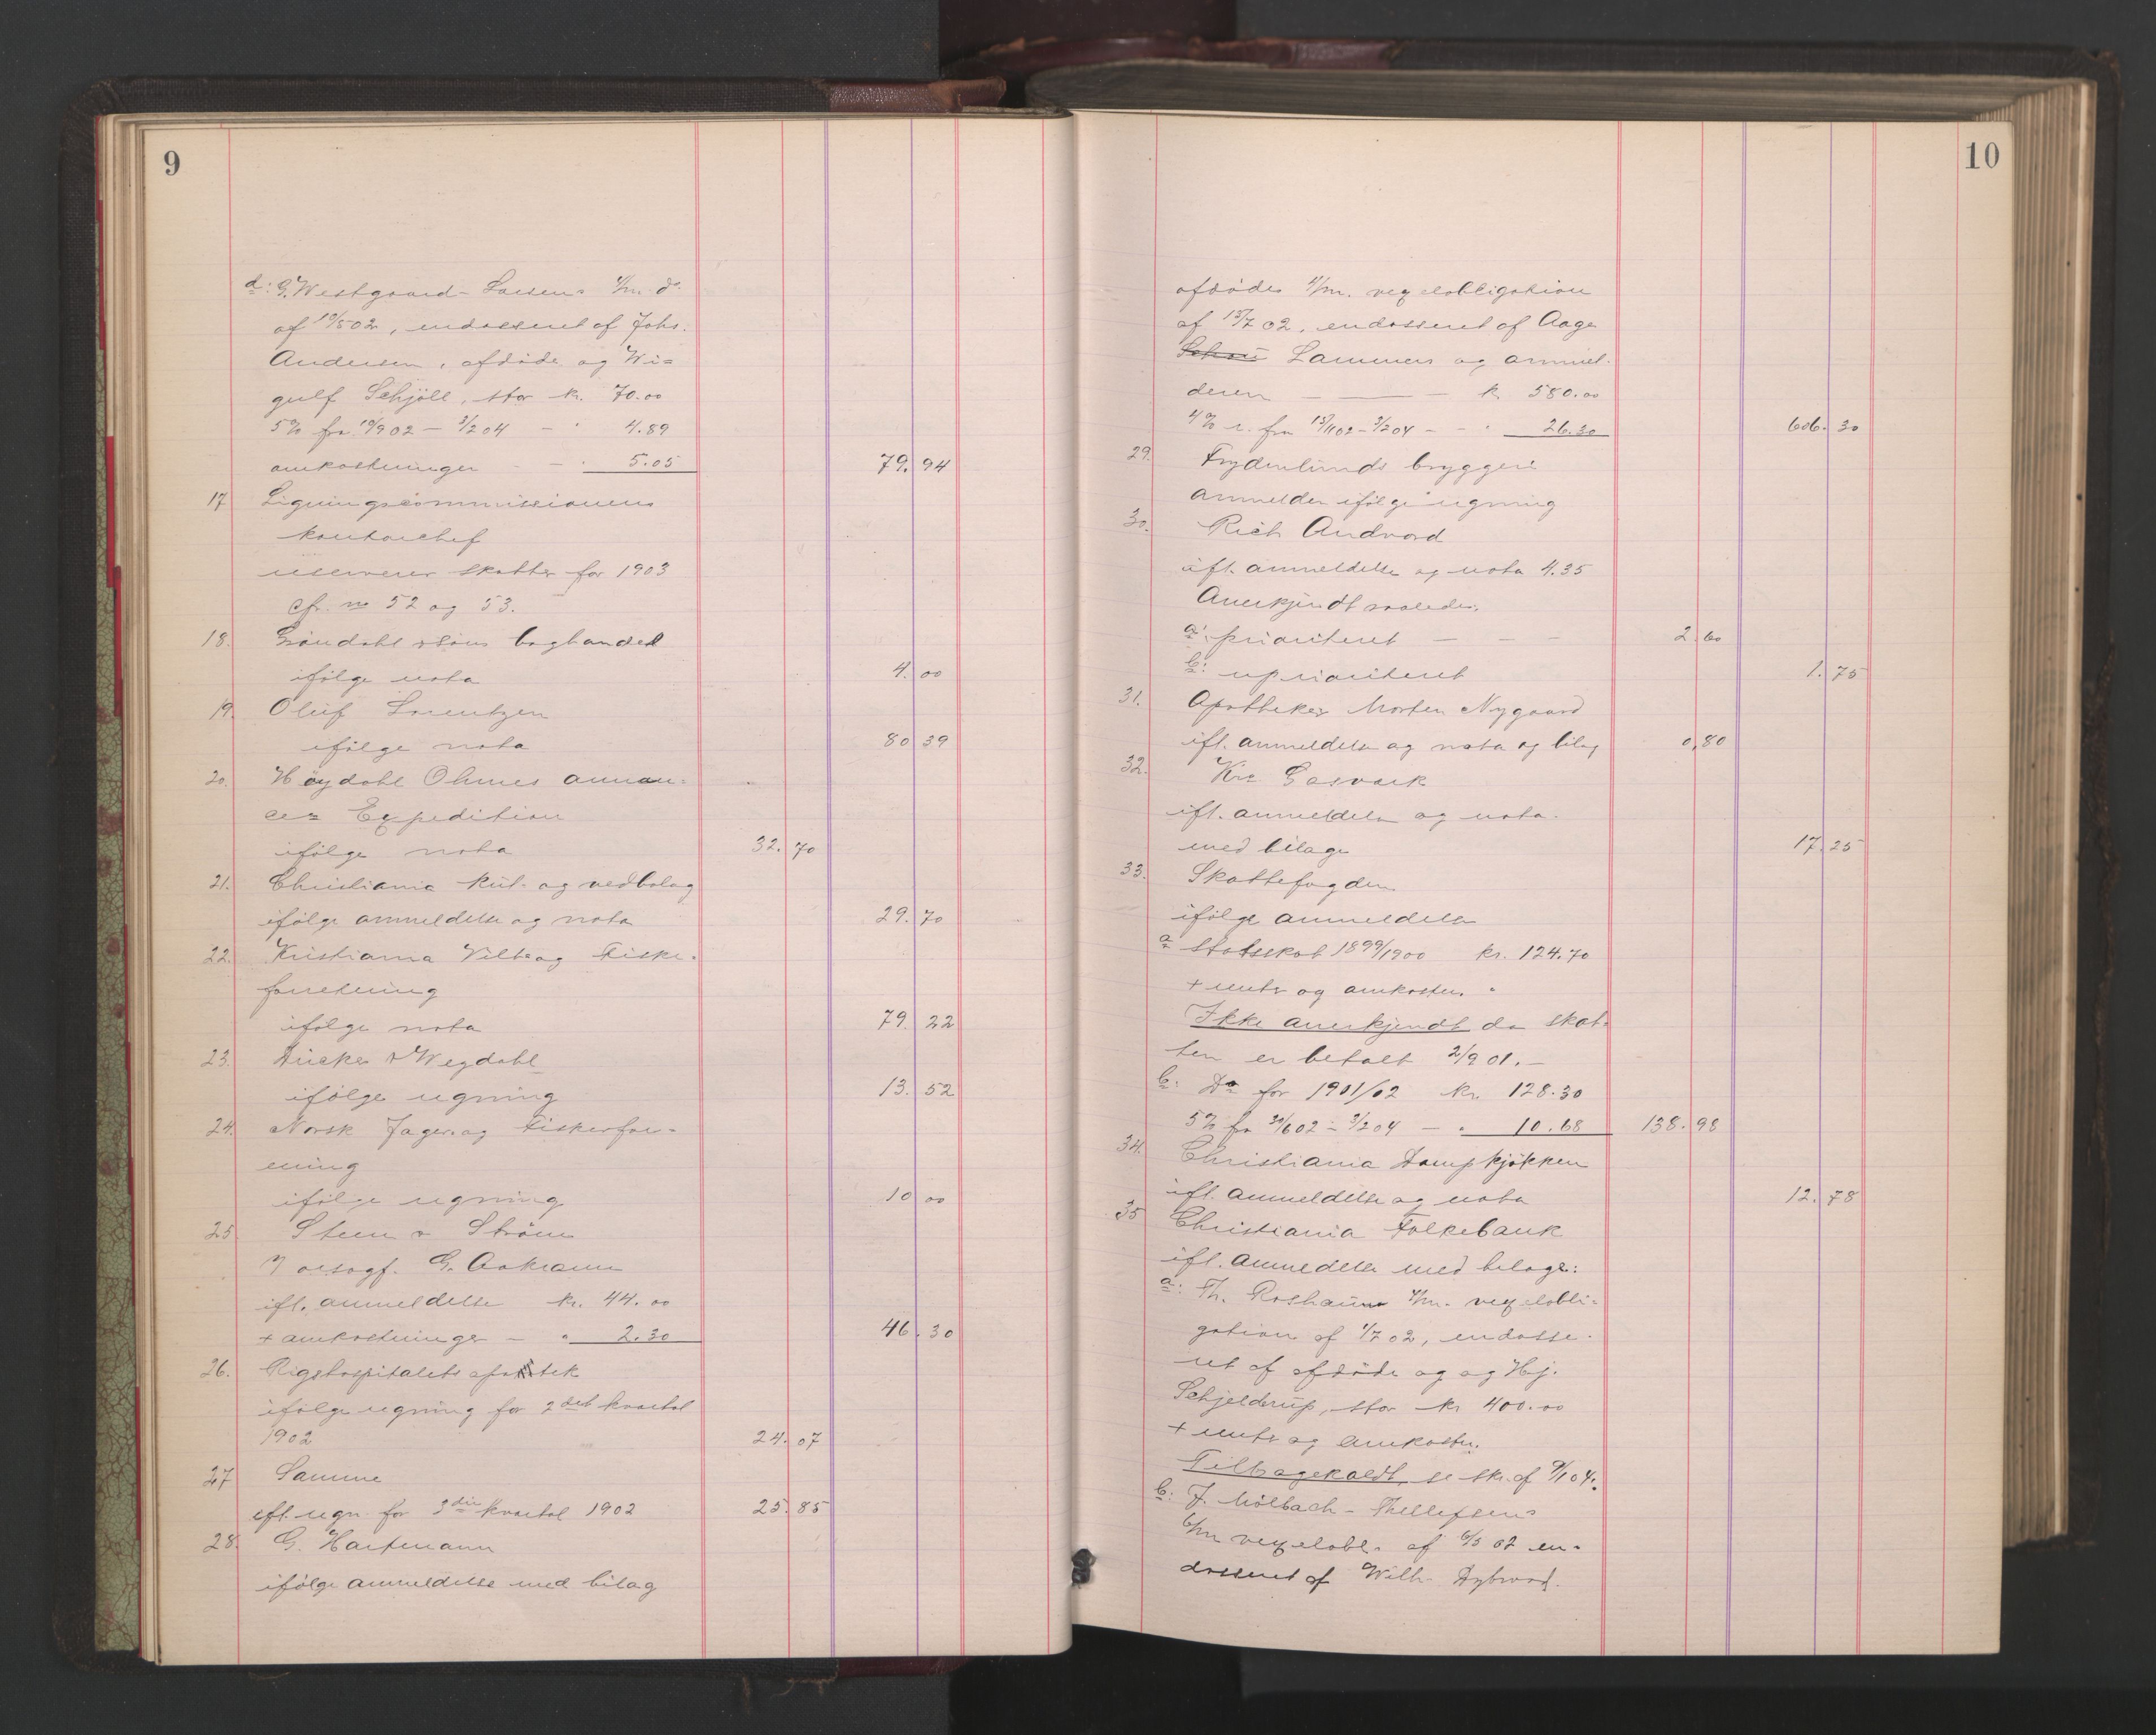 9
d: G. Westgaard-Larsens 4/m. do.
af 10/5 02, endosseret af Johs.
Andersen, afdöde og Wi=
gulf Schjöll, stor kr. 70.00
5% fra 10/9 02 – 3/2 04 – " 4.89
omkostninger – – " 5.05 79.94
17 Ligningscommissionens
kontorchef
reserverer skatter for 1903
Cfr. no 52 og 53.
18. Gröndahl & Söns boghandel
ifölge nota 4.00
19. Oluf Lorentzen
ifölge nota 80 39
20. Höydahl Ohmes annon=
ce= Expedition
ifölge nota 32.70
21. Christiania kul- og vedbolag
ifölge anmeldelse og nota 29.70
22. Kristiania Vilt og Fiske-
forretning
ifölge nota 79.22
23. Ducker & Wegdahl
ifölge regning 13.52
24. Norsk Jæger- og Fiskerfor-
ening
ifölge regning 10 00
25 Steen & Ström
v/ orsagf. G. Aakrann
ifl. anmeldelse kr. 44.00
+ omkostninger – " 2.30 46.30
26. Rigshospitalets apotek
ifölge regning for 2det kvartal
1902 24.07
27 Samme
ifl. regn. for 3die kvartal 1902 25.85
28. G. Hartmann
ifölge anmeldelse med bilag
10
afdödes 4/m. vexelobligation
af 15/7 02, endosseret af Aage
Schou Lammers og anmel-
deren – — – k 580.00
4% r. fra 15/11 02 – 3/2 04 – – " 26.30 606.30
29. Frydenlunds bryggeri
anmelder ifölge regning
30. Rich Andvord
ifl. anmeldelse og nota 4.35
Anerkjendt saaledes:
a: prioriteret – – – 2.60
b: uprioriteret 1.75
31. Apotheker Morten Nygaard
ifl. anmeldelse og nota og bilag 0,80
32. Kra Gasværk
ifl. anmeldelse og nota.
med bilage 17.25
33. Skattefogden
ifölge anmeldelse
a statsskat 1899/1900 kr. 124.70
+ renter og omkostn. "
Ikke anerkjendt da skat-
ten er betalt 2/9 01.–
b: Do for 1901/02 kr. 128.30
5% fra 30/6 02 – 3/2 04 – " 10.68 138.98
34. Christiania Dampkjökken
ifl. anmeldelse og nota 12.78
35 Christiania Folkebank
ifl. anmeldelse med bilage:
a: Th. Roshauw 4/m. vexelobli-
gation af 1/7 02, endosse-
ret af afdöde og og Hj.
Schjelderup, stor kr 400.00
+ renter og omkostn.
Tilbagekaldt, se skr. af 9/1 04.
b: J. Mölbach-Thellefsens
6/m vexelobl. af 6/5 02 en-
dosseret af Wilh. Dybwad.